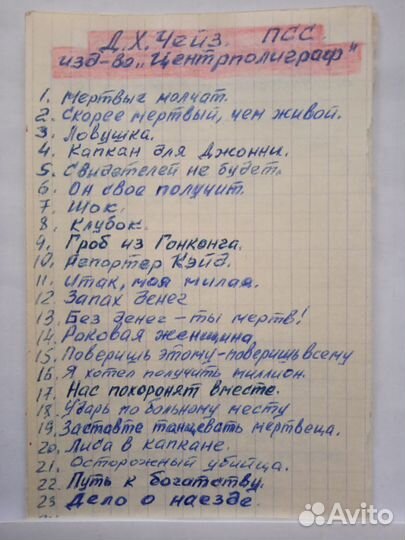 Д.Х.Чейз. ПСС.
изд-во „Центрполиграф"
1. Мертвые молчат.
2. Скорее мертвый, чем живой.
3. Ловушка.
4. Капкан для Джонни.
5. Свидетелей не будет.
6. Он свое получит.
7. Шок.
8. Клубок.
9. Гроб из Гонконга.
10. Репортер Кэйд.
11. Итак, моя милая.
12. Запах денег
13. Без денег - ты мертв!
14. Роковая женщина
15. Поверишь этому-поверишь всему
16. Я хотел получить миллион.
17. Нас похоронят вместе.
18. Ударь по больному месту
19. Заставте танцевать мертвеца.
20. Лиса в капкане.
21. Осторожный убийца.
22. Путь к богатству.
23 Дело о наезде.
Avito